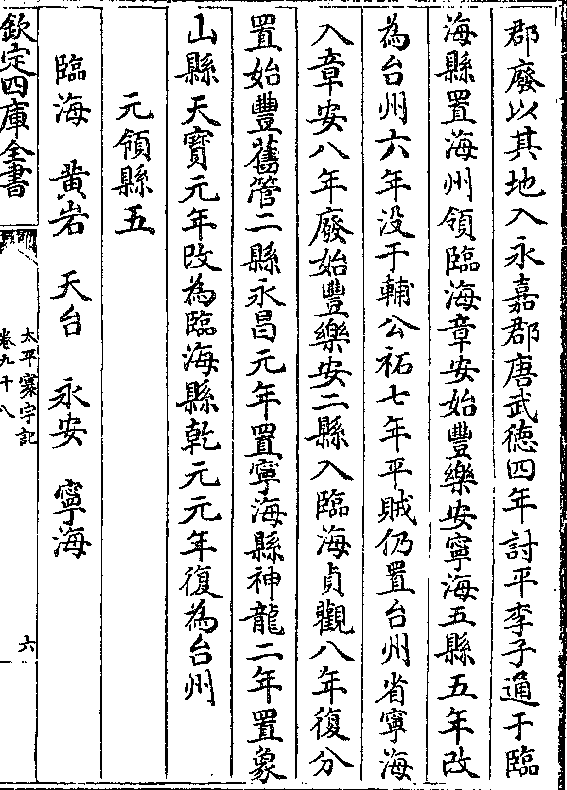 郡廢以其地入永嘉郡唐武徳四年討平李子通于臨
海縣置海州領臨海章安始豐樂安寧海五縣五年改
為台州六年没于輔公祏七年平賊仍置台州省寧海
入章安八年廢始豐樂安二縣入臨海貞觀八年復分
置始豐舊管二縣永昌元年置寧海縣神龍二年置象
山縣天寳元年改為臨海縣乾元元年復為台州
元領縣五
臨海　黄岩　天台　永安　寧海
欽定四庫全書
太平寰宇記
卷九十八
六